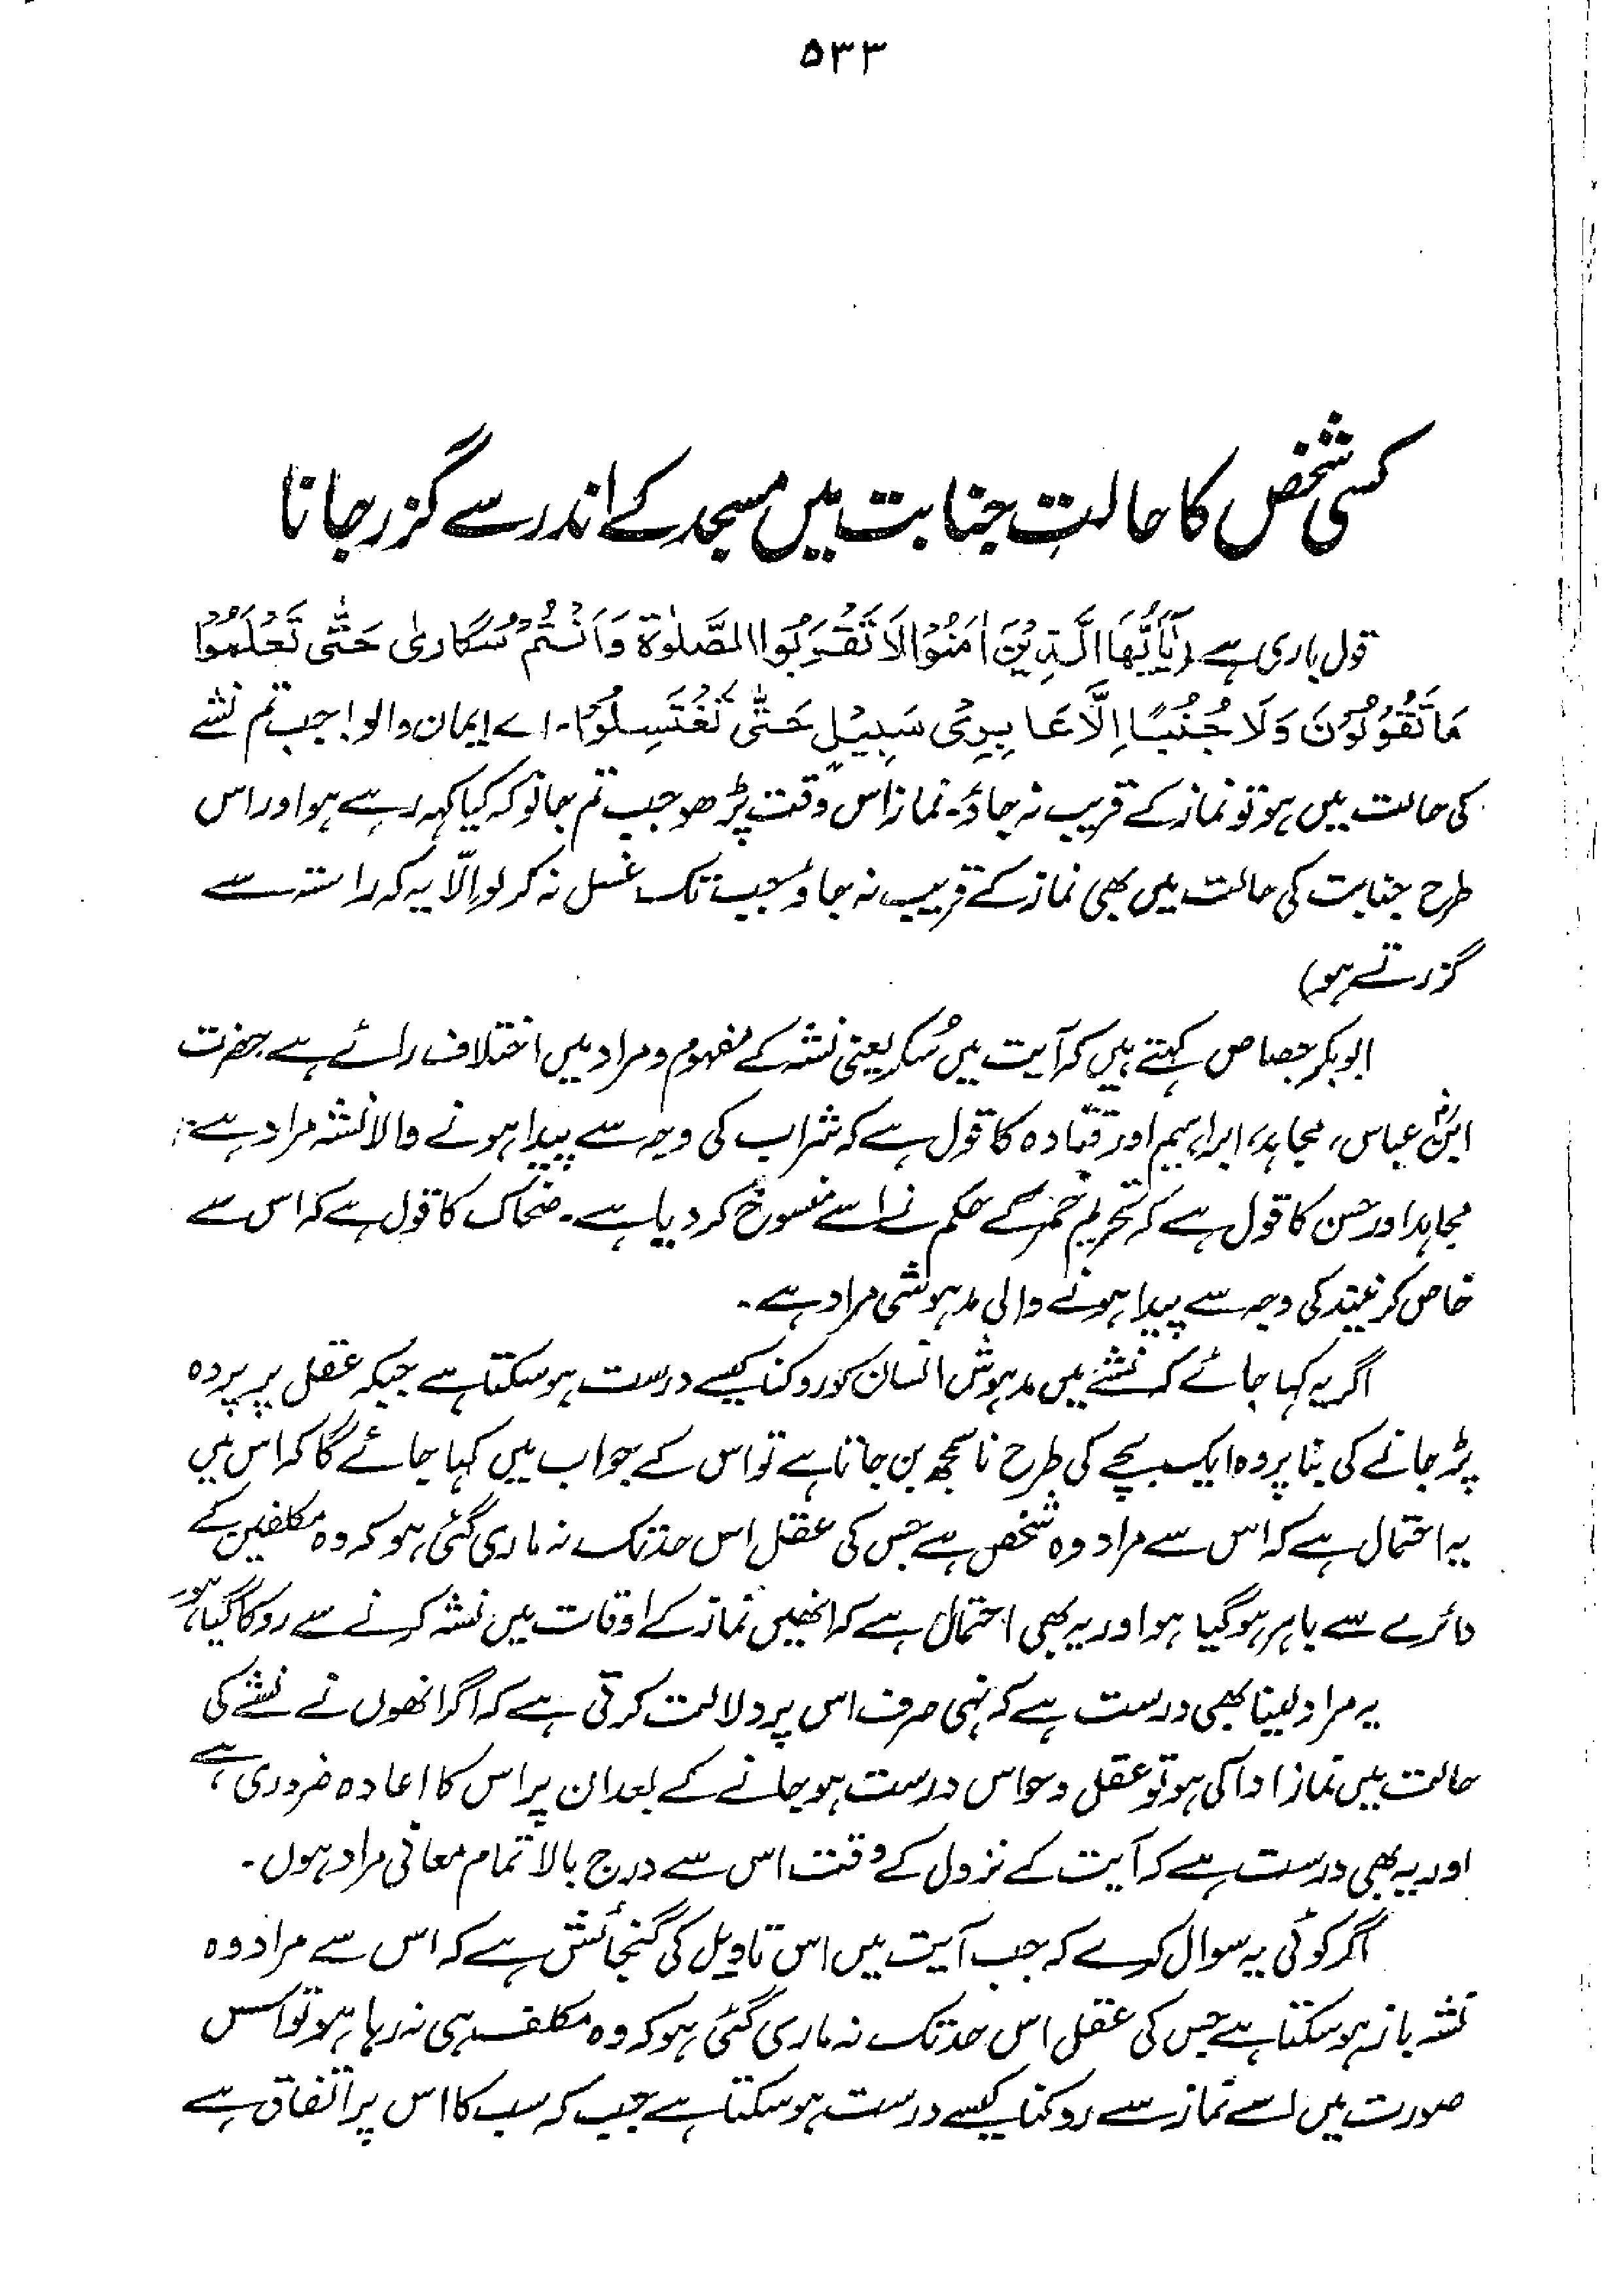 ۵۳۳
کسی شخص کا حالتِ جنابت میں مسجد کے اندر سے گزر جانا
قول باری ہے (یٰٓاَیُّھَا الَّذِیْنَ اٰمَنُوْا لَا تَقْرَبُوا الصَّلٰوۃَ وَاَنْتُمْ سُکَارٰی حَتّٰی تَعْلَمُوْا
مَا تَقُوْلُوْنَ وَلَا جُنُبًا اِلَّا عَابِرِیْ سَبِیْلٍ حَتّٰی تَغْتَسِلُوْا۔ اے ایمان والو! جب تم نشے
کی حالت میں ہو تو نماز کے قریب نہ جاؤ۔ نماز اس وقت پڑھو جب تم جانو کہ کیا کہہ رہے ہو اور اس
طرح جنابت کی حالت میں بھی نماز کے قریب نہ جاؤ جب تک غسل نہ کر لو اِلّا یہ کہ راستہ سے
گزرتے ہو)
ابوبکر جصاص کہتے ہیں کہ آیت میں سُکر یعنی نشہ کے مفہوم و مراد میں اختلاف رائے ہے۔ حضرت
ابن عباسؓ، مجاہد، ابراہیم اور قتادہ کا قول ہے کہ شراب کی وجہ سے پیدا ہونے والا نشہ مراد ہے۔
مجاہد اور حسن کا قول ہے کہ تحریم خمر کے حکم نے اسے منسوخ کر دیا ہے۔ ضحاک کا قول ہے کہ اس سے
خاص کر نیند کی وجہ سے پیدا ہونے والی مدہوشی مراد ہے۔
اگر یہ کہا جائے کہ نشے میں مدہوش انسان کو روکنا کیسے درست ہو سکتا ہے جبکہ عقل پر پردہ
پڑ جانے کی بنا پر وہ ایک بچے کی طرح ناسمجھ بن جاتا ہے تو اس کے جواب میں کہا جائے گا کہ اس میں
یہ احتمال ہے کہ اس سے مراد وہ شخص ہے جس کی عقل اس حد تک نہ ماری گئی ہو کہ وہ مکلفین کے
دائرے سے باہر ہو گیا ہو اور یہ بھی احتمال ہے کہ انھیں نماز کے اوقات میں نشہ کرنے سے روکا گیا ہو،
یہ مراد لینا بھی درست ہے کہ نہی صرف اس پر دلالت کرتی ہے کہ اگر انھوں نے نشے کی
حالت میں نماز ادا کی ہو تو عقل و حواس درست ہو جانے کے بعد ان پر اس کا اعادہ ضروری ہے،
اور یہ بھی درست ہے کہ آیت کے نزول کے وقت اس سے درج بالا تمام معانی مراد ہوں۔
اگر کوئی یہ سوال کرے کہ جب آیت میں اس تاویل کی گنجائش ہے کہ اس سے مراد وہ
نشہ باز ہو سکتا ہے جس کی عقل اس حد تک نہ ماری گئی ہو کہ وہ مکلف ہی نہ رہا ہو تو اس
صورت میں اسے نماز سے روکنا کیسے درست ہو سکتا ہے جب کہ سب کا اس پر اتفاق ہے